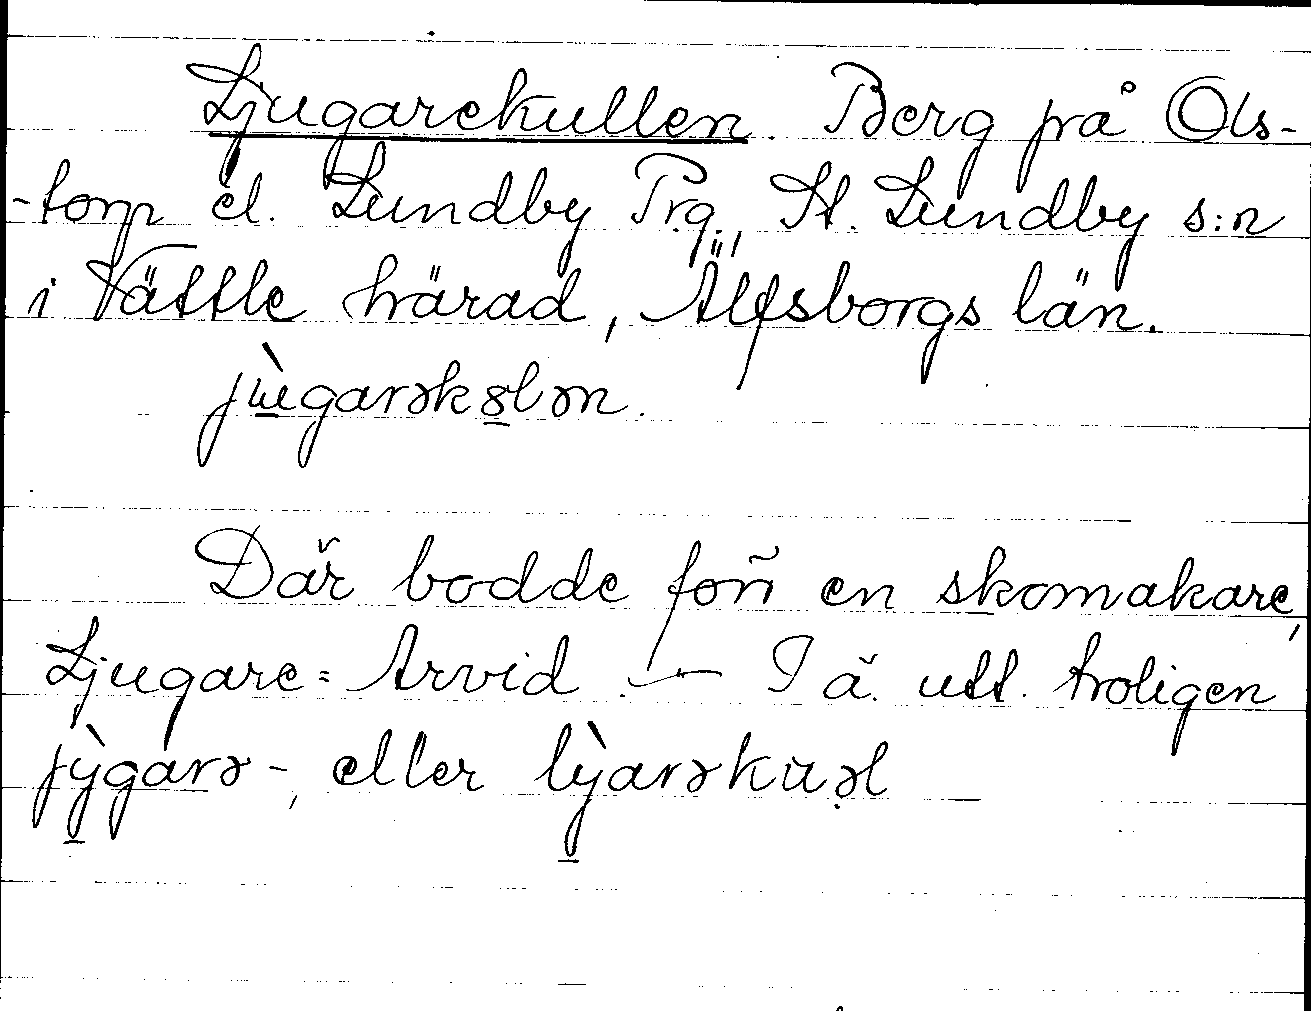 Ljugarekullen. Berg på Ols-
-torp el. Lundby Prg., St. Lundby s:n
i Vättle härad, Älfsborgs län.
jùgarəkɞlən.
Där bodde förr en skomakare,
Ljugare-Arvid. — I ä. utt. troligen
jỳgarə-, eller lỳarəkuəl